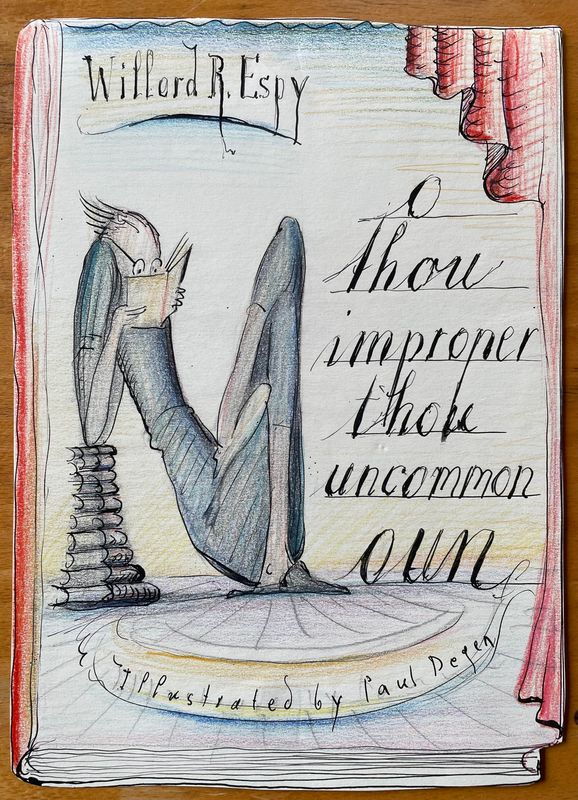 Willard R. Espy
O
thou
improper
thou
uncommon
oun
Illustrated by Paul Degen